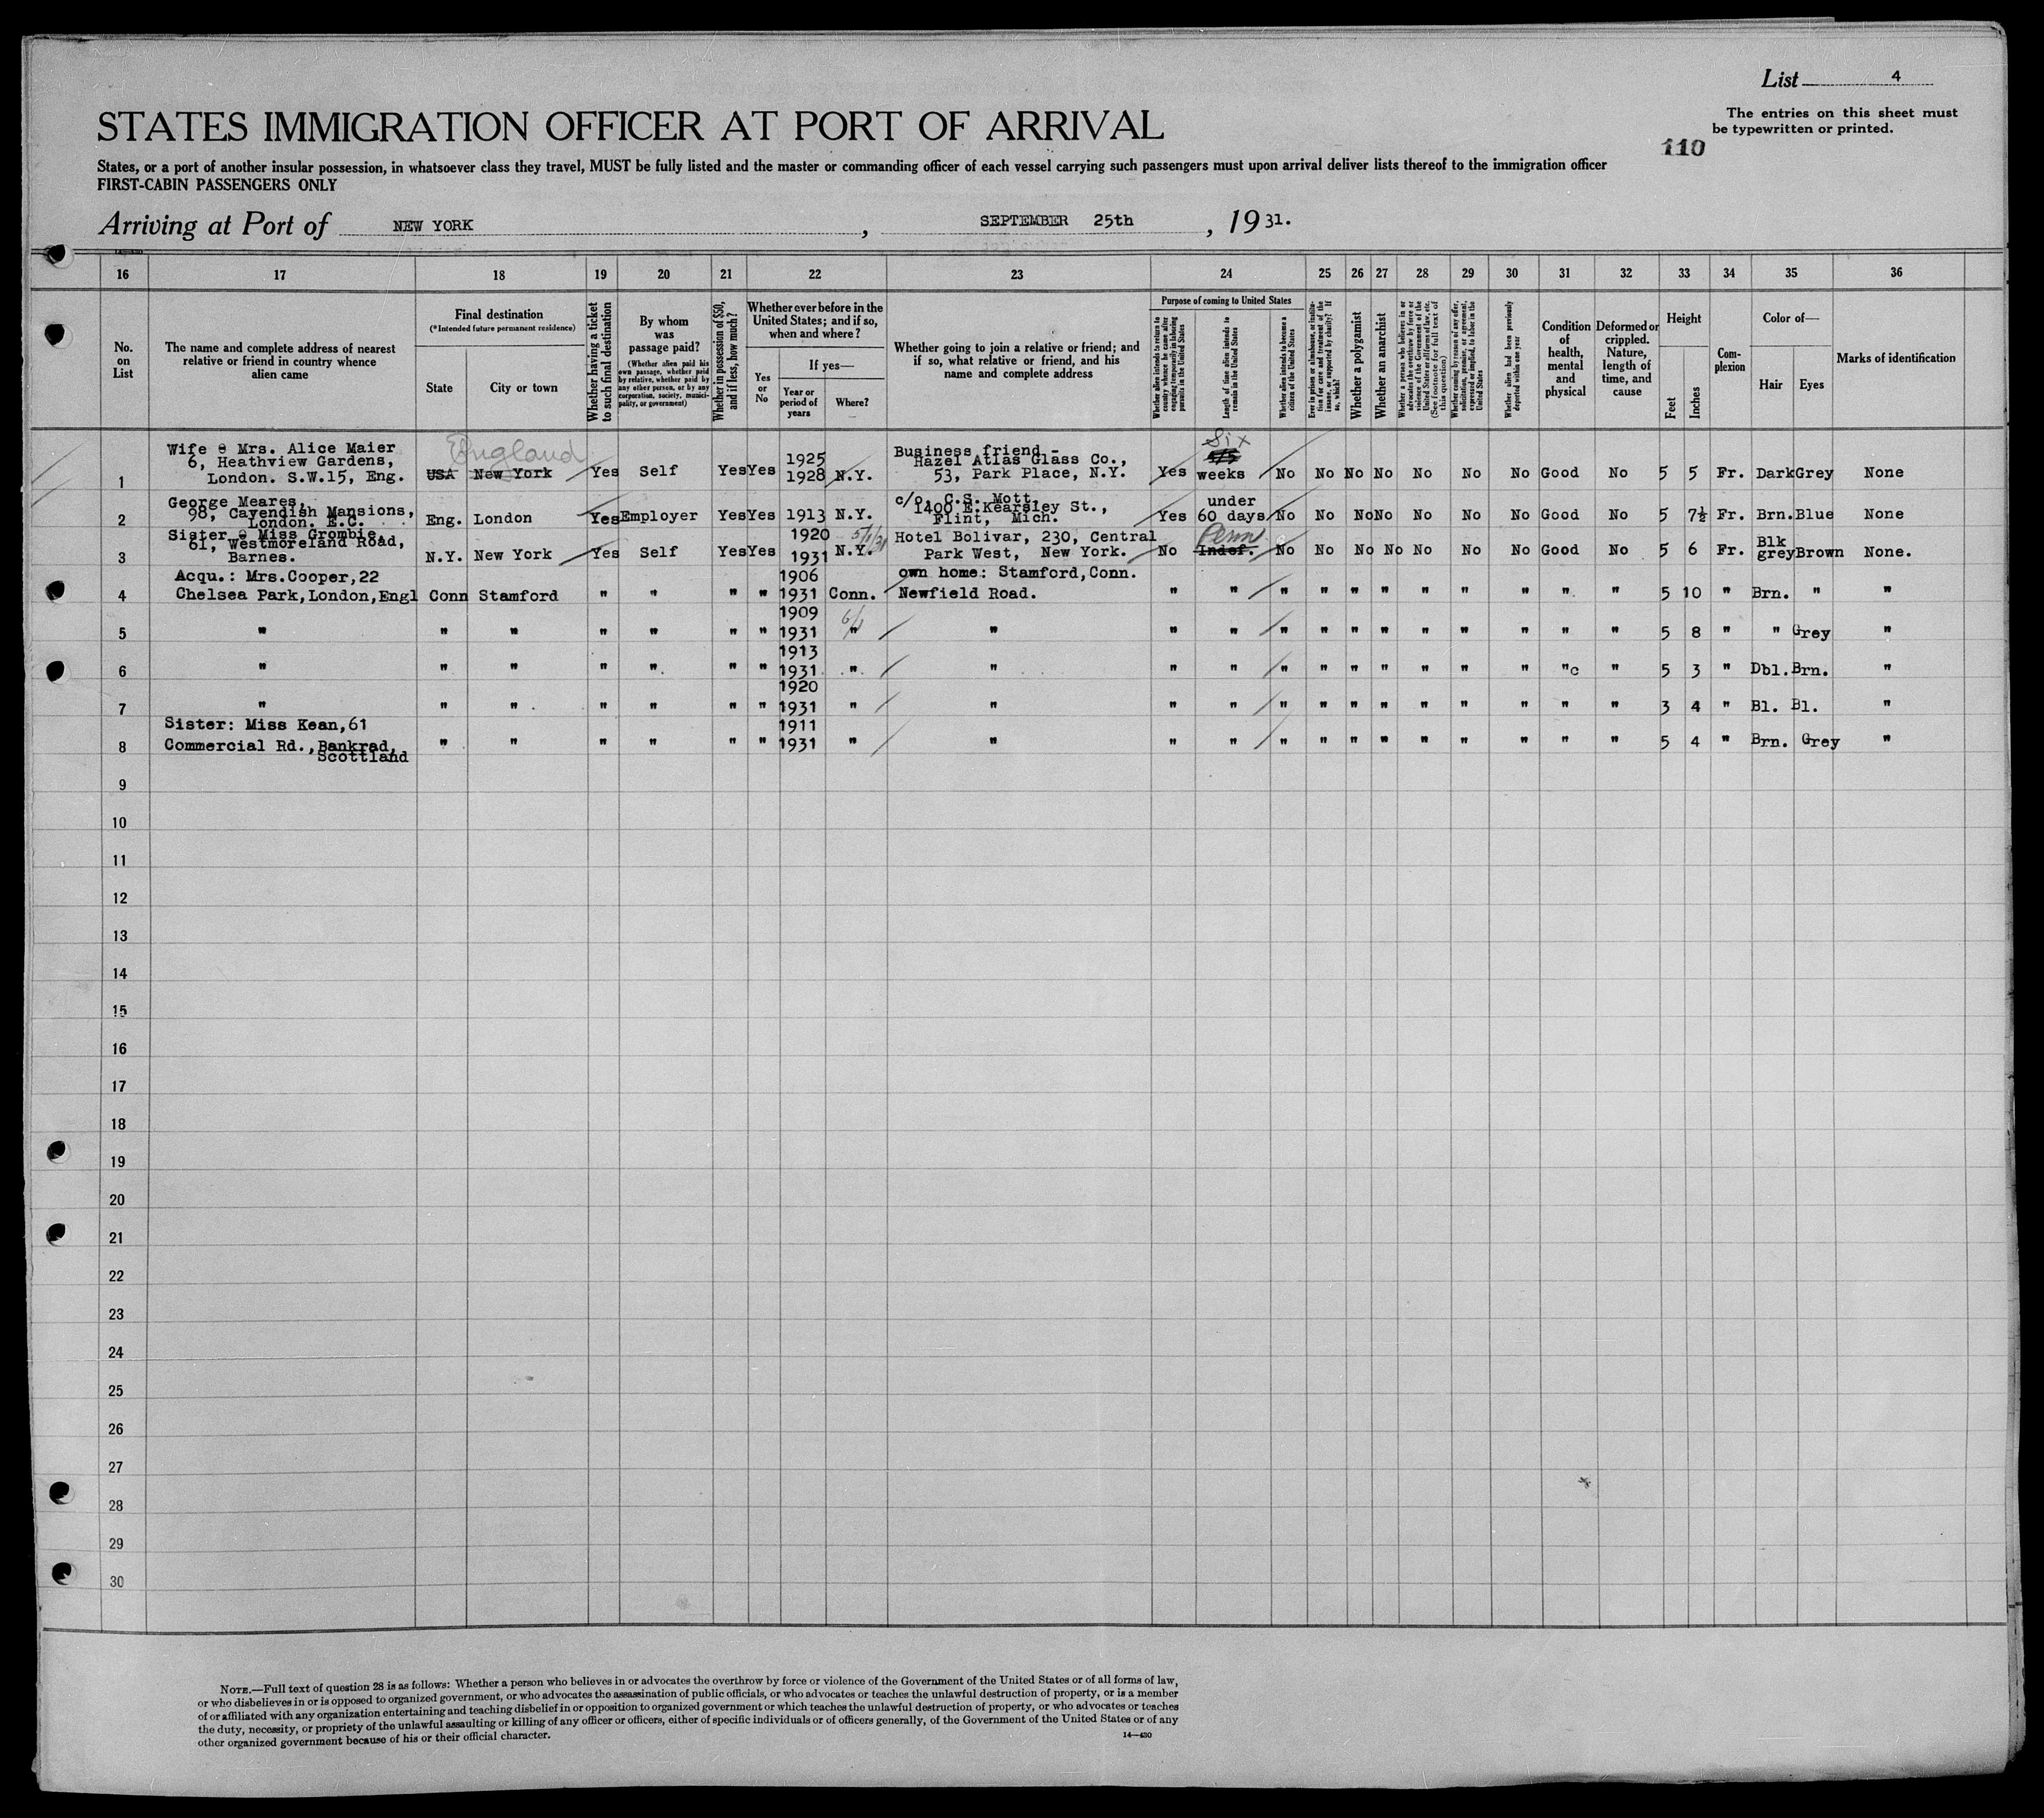 List 4
The entries on this sheet must
be typewritten or printed.
110
STATES IMMIGRATION OFFICER AT PORT OF ARRIVAL
States, or a port of another insular possession, in whatsoever class they travel, MUST be fully listed and the master or commanding officer of each vessel carrying such passengers must upon arrival deliver lists thereof to the immigration officer
FIRST-CABIN PASSENGERS ONLY
Arriving at Port of NEW YORK , SEPTEMBER 25th , 1931.
16 17 18 19 20 21 22 23 24 25 26 27 28 29 30 31 32 33 34 35 36
No.
on
List
The name and complete address of nearest
relative or friend in country whence
alien came
Final destination
(*Intended future permanent residence)
State
City or town
Whether having a ticket
to such final destination
By whom
was
passage paid?
(Whether alien paid his
own passage, whether paid
by relative, whether paid by
any other person, or by any
corporation, society, munici-
pality, or government)
Whether in possession of $50,
and if less, how much?
Whether ever before in the
United States; and if so,
when and where?
Yes
or
No
If yes—
Year or
period of
years
Where?
Whether going to join a relative or friend; and
if so, what relative or friend, and his
name and complete address
Purpose of coming to United States
Whether alien intends to return to
country whence he came after
engaging temporarily in laboring
pursuits in the United States
Length of time alien intends to
remain in the United States
Whether alien intends to become a
citizen of the United States
Ever in prison or almshouse, or institu-
tion for care and treatment of the
insane, or supported by charity? If
so, which?
Whether a polygamist
Whether an anarchist
Whether a person who believes in or
advocates the overthrow by force or
violence of the Government of the
United States or all forms of law, etc.
(See footnote for full text of
this question)
Whether coming by reason of any offer,
solicitation, promise, or agreement,
expressed or implied, to labor in the
United States
Whether alien had been previously
deported within one year
Condition
of
health,
mental
and
physical
Deformed or
crippled.
Nature,
length of
time, and
cause
Height
Feet
Inches
Com-
plexion
Color of—
Hair
Eyes
Marks of identification
England Six
Wife Mrs. Alice Maier 1925 Business friend -
6, Heathview Gardens, Hazel Atlas Glass Co.,
1 London. S.W.15, Eng. USA New York Yes Self Yes Yes 1928 N.Y. 53, Park Place, N.Y. Yes weeks No No No No No No No Good No 5 5 Fr. Dark Grey None
George Meares, c/o. C.S. Mott, under
98, Cavendish Mansions, 1400 E.Kearsley St.,
2 London. E.C. Eng. London Yes Employer Yes Yes 1913 N.Y. Flint, Mich. Yes 60 days No No No No No No No Good No 5 7½ Fr. Brn. Blue None
Sister Miss Crombie, 1920 5/1/31 Hotel Bolivar, 230, Central Perm
61, Westmoreland Road, Blk
3 Barnes. N.Y. New York Yes Self Yes Yes 1931 N.Y. Park West, New York. No Indef. No No No No No No No Good No 5 6 Fr. grey Brown None.
Acqu.: Mrs.Cooper,22 1906 own home: Stamford,Conn.
4 Chelsea Park,London,Engl Conn Stamford " " " " 1931 Conn. Newfield Road. " " " " " " " " " " " 5 10 " Brn. " "
1909 6/1
5 " " " " " " " 1931 " " " " " " " " " " " " " 5 8 " " Grey "
1913
6 " " " " " " " 1931 " " " " " " " " " " " "c " 5 3 " Dbl. Brn. "
1920
7 " " " " " " " 1931 " " " " " " " " " " " " " 3 4 " Bl. Bl. "
Sister: Miss Kean,61 1911
8 Commercial Rd.,Bankrad, " " " " " " 1931 " " " " " " " " " " " " " 5 4 " Brn. Grey "
Scottland
9
10
11
12
13
14
15
16
17
18
19
20
21
22
23
24
25
26
27
28
29
30
NOTE.—Full text of question 28 is as follows: Whether a person who believes in or advocates the overthrow by force or violence of the Government of the United States or of all forms of law,
or who disbelieves in or is opposed to organized government, or who advocates the assassination of public officials, or who advocates or teaches the unlawful destruction of property, or is a member
of or affiliated with any organization entertaining and teaching disbelief in or opposition to organized government or which teaches the unlawful destruction of property, or who advocates or teaches
the duty, necessity, or propriety of the unlawful assaulting or killing of any officer or officers, either of specific individuals or of officers generally, of the Government of the United States or of any
other organized government because of his or their official character.
14—430